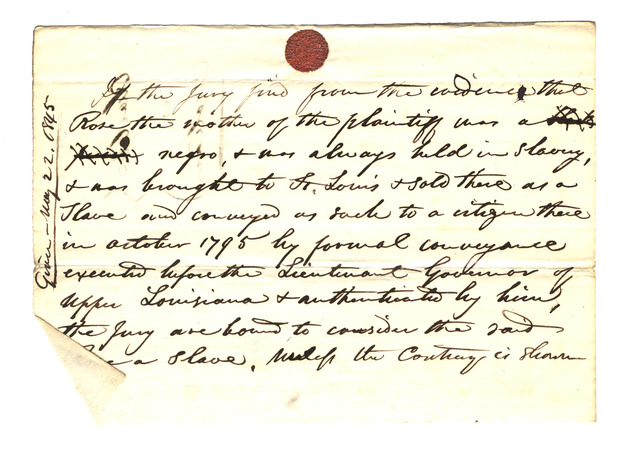 Given - May 22. 1845
If the Jury find from the evidence that
Rose the mother of the plaintiff was a
negro, & was always held in slavery,
& was brought to St. Louis & sold there as a
Slave and conveyed as such to a citizen there
in october 1795 by formal conveyance
executed before the Lieutenant Governor of
upper Louisiana & authenticated by him,
the Jury are bound to consider the said
a Slave. unless the Contrary is shown